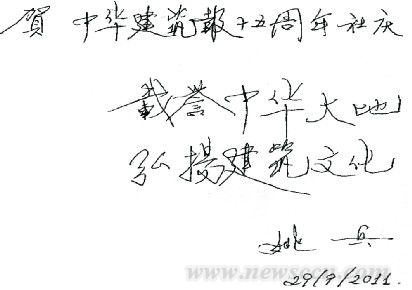 賀 中华建筑報十五周年社庆
载誉中华大地
弘揚建筑文化
姚兵
29/9/2011.